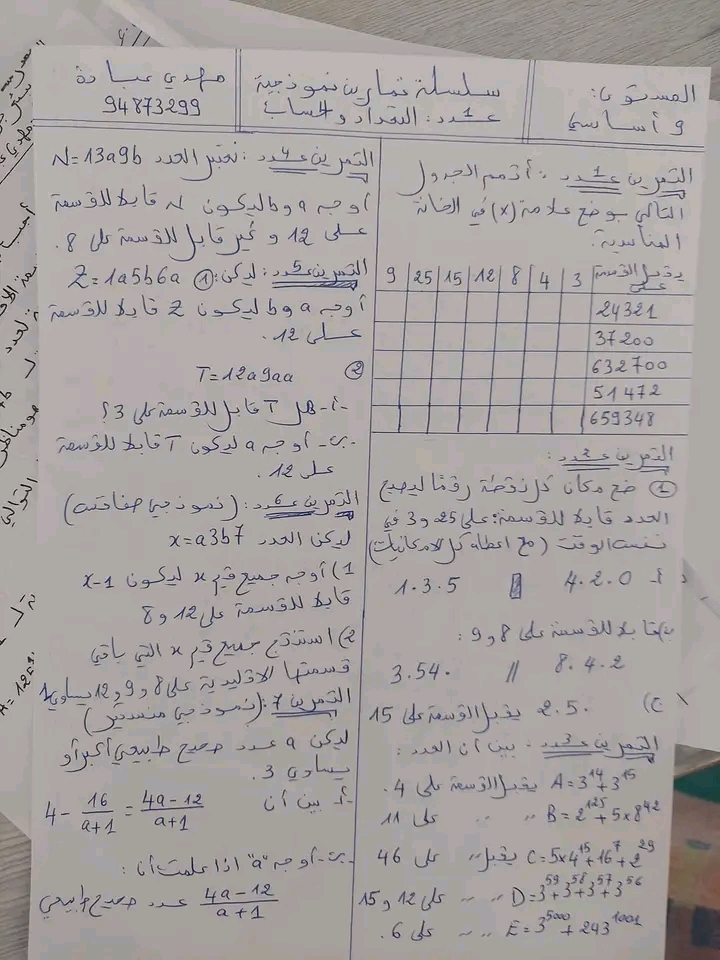 المستوى:
9 أساسي
سلسلة تمارين نموذجية
عدد 1: التعداد والحساب
مهدي عبادة
94873299
التمرين عدد 1: أتمم الجدول
التالي بوضع علامة (x) في الخانة
المناسبة.
يقبل القسمة على 3 4 8 12 15 25 9
24321
37200
632700
51472
659348
التمرين عدد 2:
① ضع مكان كل نقطة رقما ليصبح
العدد قابلا للقسمة: على 25 و 3 في
نفس الوقت (مع اعطاء كل الامكانيات)
أ- 4.2.0 1.3.5
ب- قابلا للقسمة على 8 و 9:
8.4.2 // 3.54.
ج) 2.5. يقبل القسمة على 15
التمرين عدد 3: بين أن العدد:
A=3¹⁴+3¹⁵ يقبل القسمة على 4.
B=2¹²⁵+5x8⁴² " " على 11
C=5x4¹⁵+16⁷+2²⁹ يقبل " على 46
D=3⁵⁹+3⁵⁸+3⁵⁷+3⁵⁶ " " على 12 و 15
E=3⁵⁰⁰⁰+243¹⁰⁰¹ " " على 6.
التمرين عدد 4: نعتبر العدد N=13a9b
أوجد a و b ليكون N قابلا للقسمة
على 12 و غير قابل للقسمة على 8.
التمرين عدد 5: ليكن: ① Z=1a5b6a
أوجد a و b ليكون Z قابلا للقسمة
على 12.
② T=12a9aa
أ- هل T قابل للقسمة على 3؟
ب- أوجد a ليكون T قابلا للقسمة
على 12.
التمرين عدد 6: (نموذجي صفاقس)
ليكن العدد x=a3b7
1) أوجد جميع قيم x ليكون x-1
قابلا للقسمة على 12 و 8
2) استنتج جميع قيم x التي باقي
قسمتها الاقليدية على 8 و 9 و 12 يساوي 1
التمرين 7: (نموذجي منستير)
ليكن a عدد صحيح طبيعي أكبر أو
يساوي 3.
أ- بين أن 4 - 16/(a+1) = (4a-12)/(a+1)
ب- أوجد "a" اذا علمت أن:
(4a-12)/(a+1) عدد صحيح طبيعي